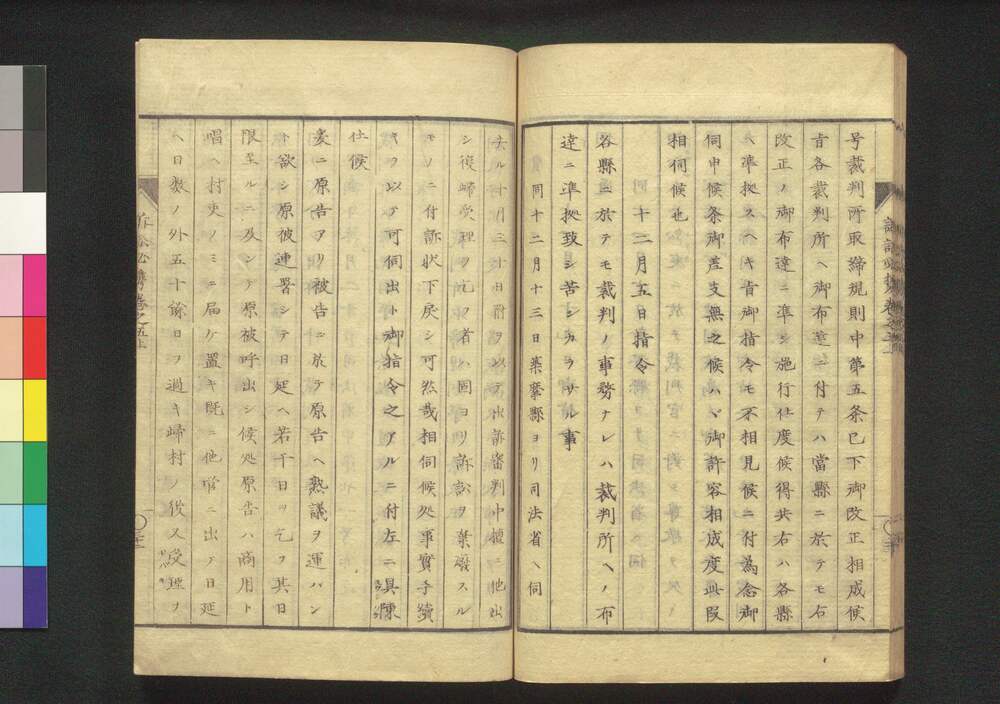 号裁判所取締規則中第五条已下御改正相成候
旨各裁判所ヘ御布達ニ付テハ當縣ニ於テモ右
改正ノ御布達ニ準シ施行仕度候得共右ハ各縣
ヘ準拠スヘキ旨御指令モ不相見候ニ付為念御
伺申候条御差支無之候ハヾ御許容相成度此段
相伺候也
十二月五日指令
各縣ニ於テモ裁判ノ事務ナレハ裁判所ヘノ布
達ニ準拠致シ苦シカラサル事
同十二月十三日薬麼縣ヨリ司法省ヘ伺
去ル十月三十日附ヲ以テ出訴審判中擅ニ他出
シ復帰受理ヲ乞フ者ハ固ヨリ訴訟ヲ棄廢スル
モノニ付訴状下戻シ可然哉相伺候処事實手續
キヲ以テ可伺出ト御指令之アルニ付左ニ具陳
仕候
爰ニ原告アリ被告ニ於テ原告ヘ熟議ヲ運バン
ト欲シ原被連署シテ日延ヘ若干日ヲ乞フ其日
限至ルニ及ンデ原被呼出シ候処原告ハ商用ト
唱ヘ村吏ノミニ届ケ置キ既ニ他管ニ出テ日延
ヘ日数ノ外五十餘日ヲ過キ帰村ノ後又受理ヲ